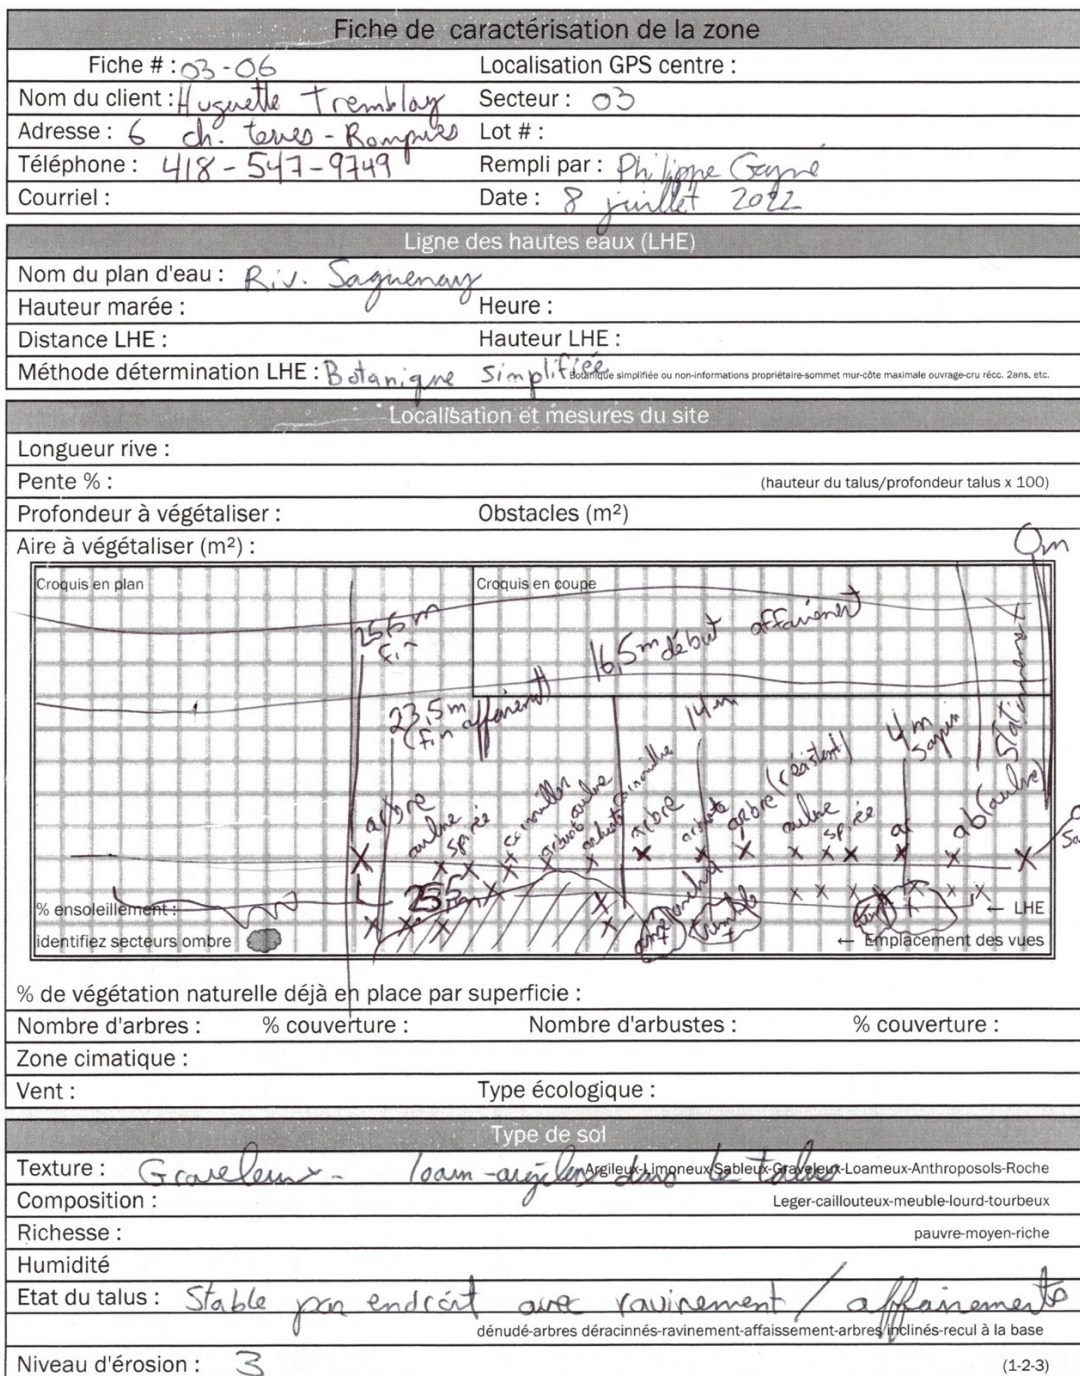 Fiche de caractérisation de la zone
Fiche # : 03-06 Localisation GPS centre :
Nom du client : Huguette Tremblay Secteur : 03
Adresse : 6 ch. terres-Rompues Lot # :
Téléphone : 418-547-9749 Rempli par : Philippe Gagné
Courriel : Date : 8 juillet 2022
Ligne des hautes eaux (LHE)
Nom du plan d'eau : Riv. Saguenay
Hauteur marée : Heure :
Distance LHE : Hauteur LHE :
Méthode détermination LHE : Botanique simplifiée Botanique simplifiée ou non-informations propriétaire-sommet mur-côte maximale ouvrage-cru récc. 2ans, etc.
Localisation et mesures du site
Longueur rive :
Pente % : (hauteur du talus/profondeur talus x 100)
Profondeur à végétaliser : Obstacles (m²)
Aire à végétaliser (m²) :
0m
Croquis en plan Croquis en coupe
25,5 m fin
16,5m début affaisement
23,5m (fin affaisement)
14m
4m sapin
stationnement
arbre aulne spirée cornouiller arbuste aulne arbuste cornouiller arbre arbuste arbre (résistent) aulne spirée ar ab (aulne)
25,5
% ensoleillement : ← LHE
identifiez secteurs ombre ← Emplacement des vues
tremble
% de végétation naturelle déjà en place par superficie :
Nombre d'arbres : % couverture : Nombre d'arbustes : % couverture :
Zone cimatique :
Vent : Type écologique :
Type de sol
Texture : Graveleux - loam-argileux dans le talus Argileux-Limoneux-Sableux-Graveleux-Loameux-Anthroposols-Roche
Composition : Leger-caillouteux-meuble-lourd-tourbeux
Richesse : pauvre-moyen-riche
Humidité
Etat du talus : Stable par endroit avec ravinement / affaisements
dénudé-arbres déracinnés-ravinement-affaissement-arbres inclinés-recul à la base
Niveau d'érosion : 3 (1-2-3)